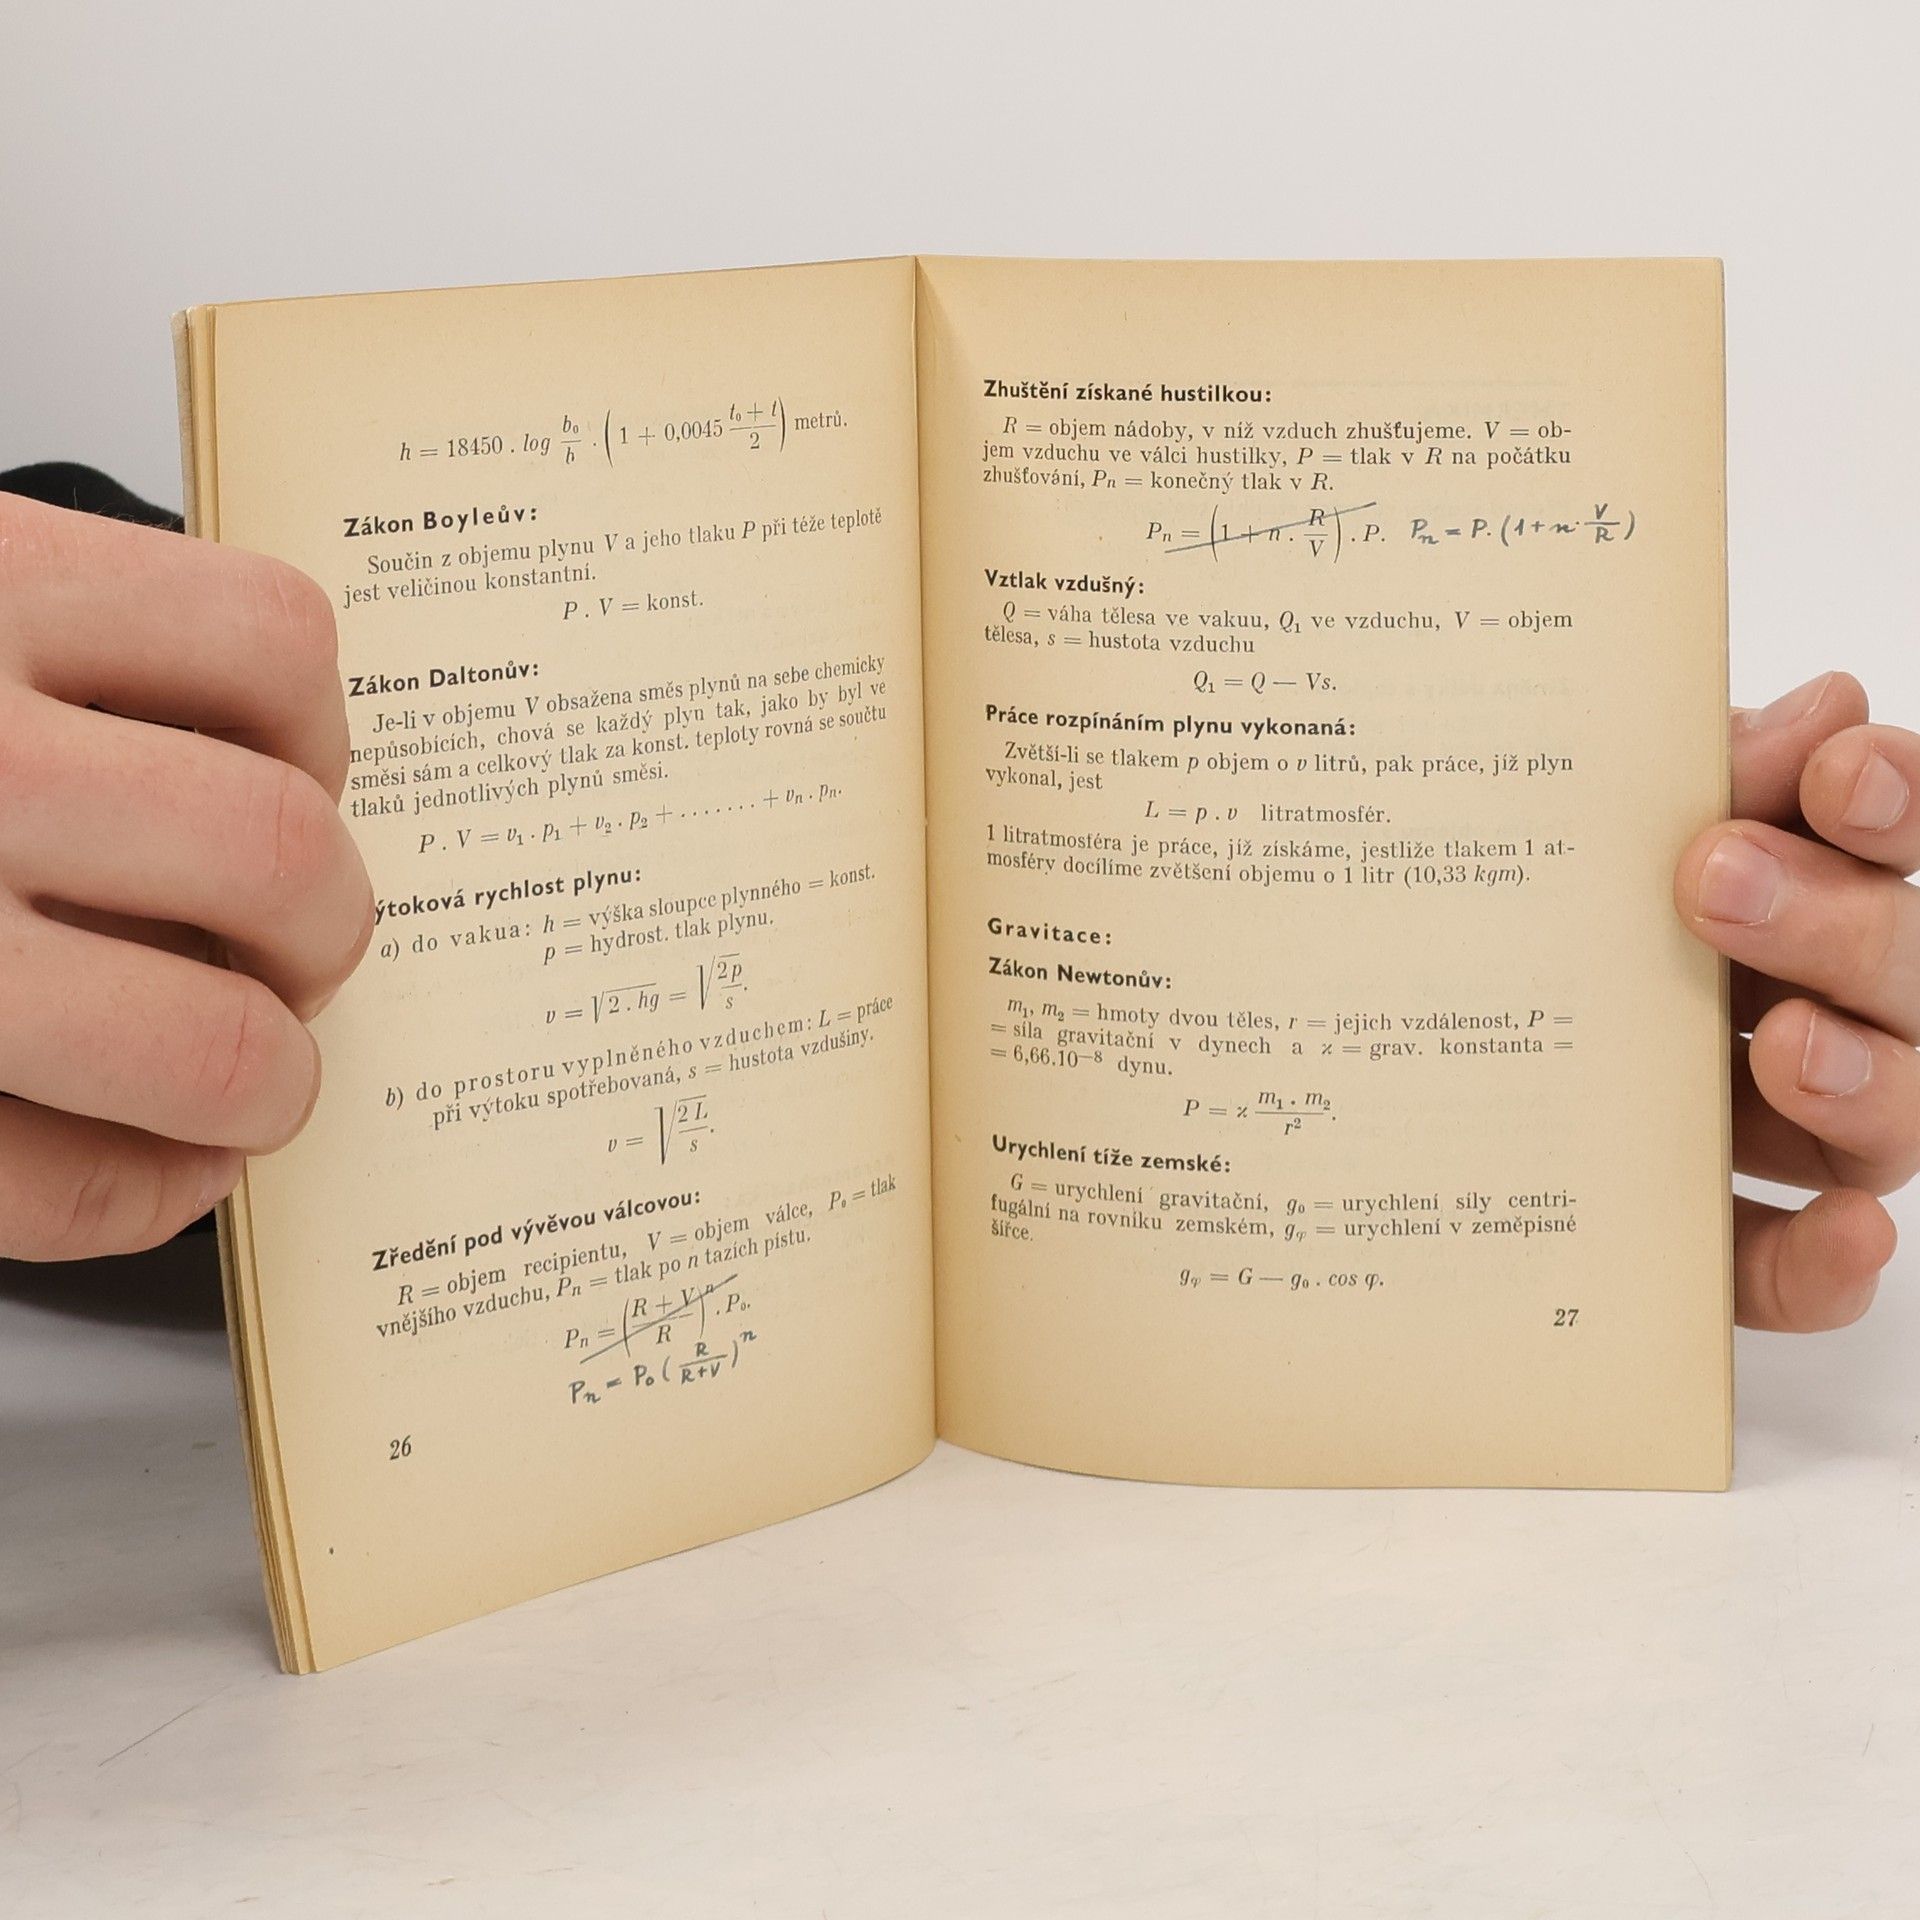 h = 18450 . log b₀/b . (1 + 0,0045 (t₀ + t)/2) metrů.
Zákon Boyleův:
Součin z objemu plynu V a jeho tlaku P při téže teplotě
jest veličinou konstantní.
P . V = konst.
Zákon Daltonův:
Je-li v objemu V obsažena směs plynů na sebe chemicky
nepůsobících, chová se každý plyn tak, jako by byl ve
směsi sám a celkový tlak za konst. teploty rovná se součtu
tlaků jednotlivých plynů směsi.
P . V = v₁ . p₁ + v₂ . p₂ + ........ + vₙ . pₙ.
ýtoková rychlost plynu:
a) do vakua: h = výška sloupce plynného = konst.
p = hydrost. tlak plynu.
v = √(2 . hg) = √(2p/s).
b) do prostoru vyplněného vzduchem: L = práce
při výtoku spotřebovaná, s = hustota vzdušiny.
v = √(2 L/s).
Zředění pod vývěvou válcovou:
R = objem recipientu, V = objem válce, P₀ = tlak
vnějšího vzduchu, Pₙ = tlak po n tazích pístu.
Pₙ = ((R + V)/R)ⁿ . P₀.
Pₙ = P₀ (R/(R+V))ⁿ
26
Zhuštění získané hustilkou:
R = objem nádoby, v níž vzduch zhušťujeme. V = ob-
jem vzduchu ve válci hustilky, P = tlak v R na počátku
zhušťování, Pₙ = konečný tlak v R.
Pₙ = (1 + n . R/V) . P. Pₙ = P. (1 + n · V/R)
Vztlak vzdušný:
Q = váha tělesa ve vakuu, Q₁ ve vzduchu, V = objem
tělesa, s = hustota vzduchu
Q₁ = Q — Vs.
Práce rozpínáním plynu vykonaná:
Zvětší-li se tlakem p objem o v litrů, pak práce, jíž plyn
vykonal, jest
L = p . v litratmosfér.
1 litratmosféra je práce, jíž získáme, jestliže tlakem 1 at-
mosféry docílíme zvětšení objemu o 1 litr (10,33 kgm).
Gravitace:
Zákon Newtonův:
m₁, m₂ = hmoty dvou těles, r = jejich vzdálenost, P =
= síla gravitační v dynech a ϰ = grav. konstanta =
= 6,66.10⁻⁸ dynu.
P = ϰ (m₁ . m₂)/r².
Urychlení tíže zemské:
G = urychlení gravitační, g₀ = urychlení síly centri-
fugální na rovníku zemském, gᵩ = urychlení v zeměpisné
šířce.
gᵩ = G — g₀ . cos φ.
27